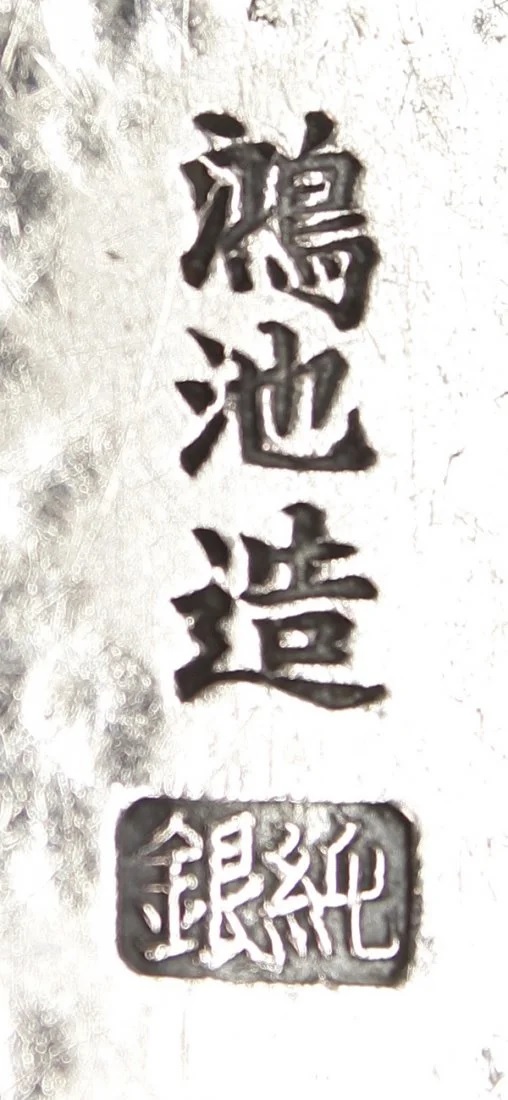 鴻池造
純銀